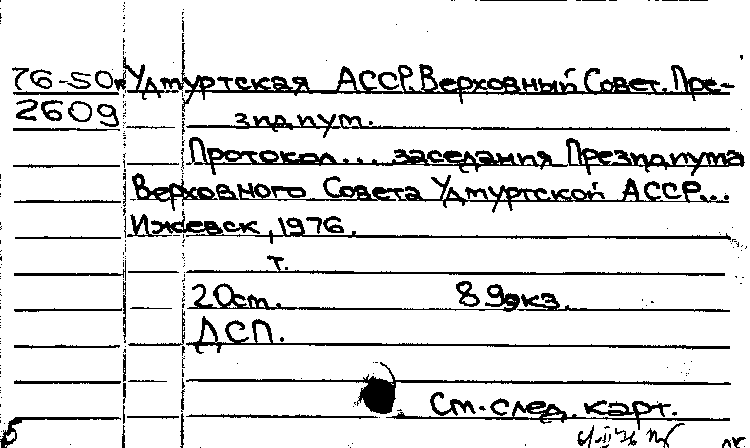 76-50к Удмуртская АССР. Верховный Совет. Пре-
2609 зидиум.
Протокол... заседания Президиума
Верховного Совета Удмуртской АССР...
Ижевск, 1976.
т.
20ст. 89экз.
ДСП.
См. след. карт.